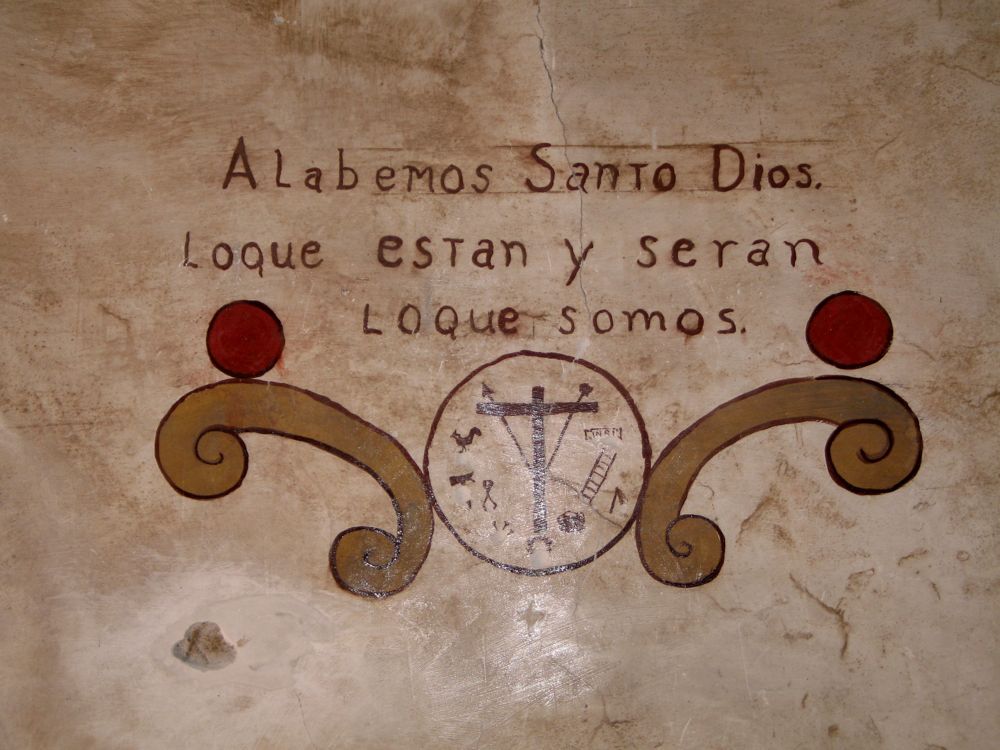 Alabemos Santo Dios.
Loque estan y seran
Loque somos.